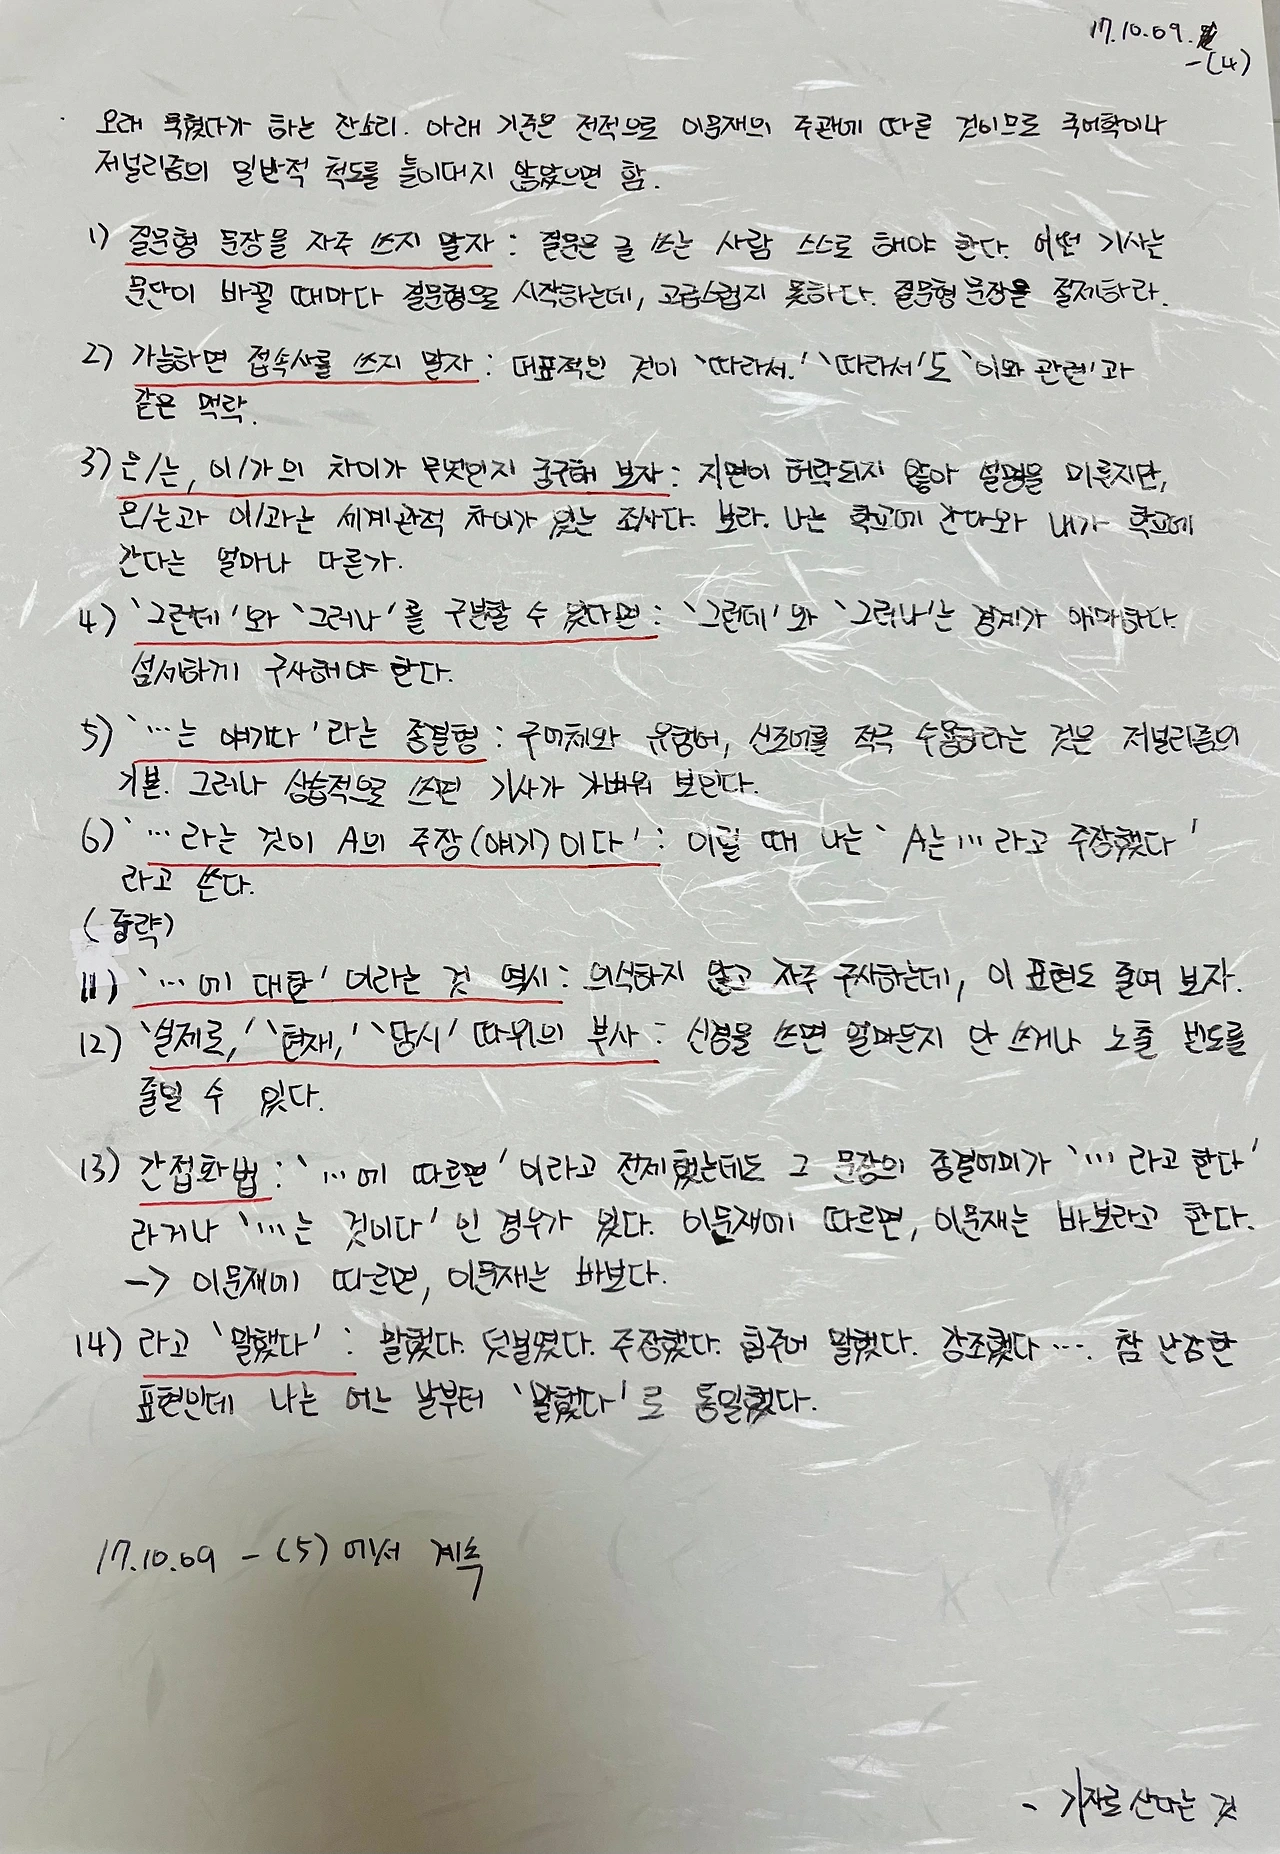 17.10.09.
-(4)
오래 묵혔다가 하는 잔소리. 아래 기준은 전적으로 이문재의 주관에 따른 것이므로 국어학이나
저널리즘의 일반적 척도를 들이대지 않았으면 함.
1) 질문형 문장을 자주 쓰지 말자 : 질문은 글 쓰는 사람 스스로 해야 한다. 어떤 기사는
문단이 바뀔 때마다 질문형으로 시작하는데, 고급스럽지 못하다. 질문형 문장을 절제하라.
2) 가능하면 접속사를 쓰지 말자 : 대표적인 것이 '따라서.' '따라서'도 '이와 관련'과
같은 맥락.
3) 은/는, 이/가의 차이가 무엇인지 궁구해 보자 : 지면이 허락되지 않아 설명을 미루지만,
은/는과 이/과는 세계관적 차이가 있는 조사다. 보라. 나는 학교에 간다와 내가 학교에
간다는 얼마나 다른가.
4) '그런데'와 '그러나'를 구분할 수 있다면 : '그런데'와 '그러나'는 경계가 애매하다.
섬세하게 구사해야 한다.
5) '…는 얘기다'라는 종결형 : 구어체와 유행어, 신조어를 적극 수용하라는 것은 저널리즘의
기본. 그러나 상습적으로 쓰면 기사가 가벼워 보인다.
6) '…라는 것이 A의 주장(얘기)이다' : 이럴 때 나는 'A는 …라고 주장했다'
라고 쓴다.
(중략)
11) '…에 대한' 이라는 것 역시 : 의식하지 않고 자주 구사하는데, 이 표현도 줄여 보자.
12) '실제로,' '현재,' '당시' 따위의 부사 : 신경을 쓰면 얼마든지 안 쓰거나 노출 빈도를
줄일 수 있다.
13) 간접화법 : '…에 따르면' 이라고 전제했는데도 그 문장의 종결어미가 '…라고 한다'
라거나 '…는 것이다'인 경우가 있다. 이문재에 따르면, 이문재는 바보라고 한다.
-> 이문재에 따르면, 이문재는 바보다.
14) 라고 '말했다' : 말했다. 덧붙였다. 주장했다. 힘주어 말했다. 강조했다…. 참 난감한
표현인데 나는 어느 날부터 '말했다'로 통일했다.
17.10.09 -(5)에서 계속
- 기자로 산다는 것